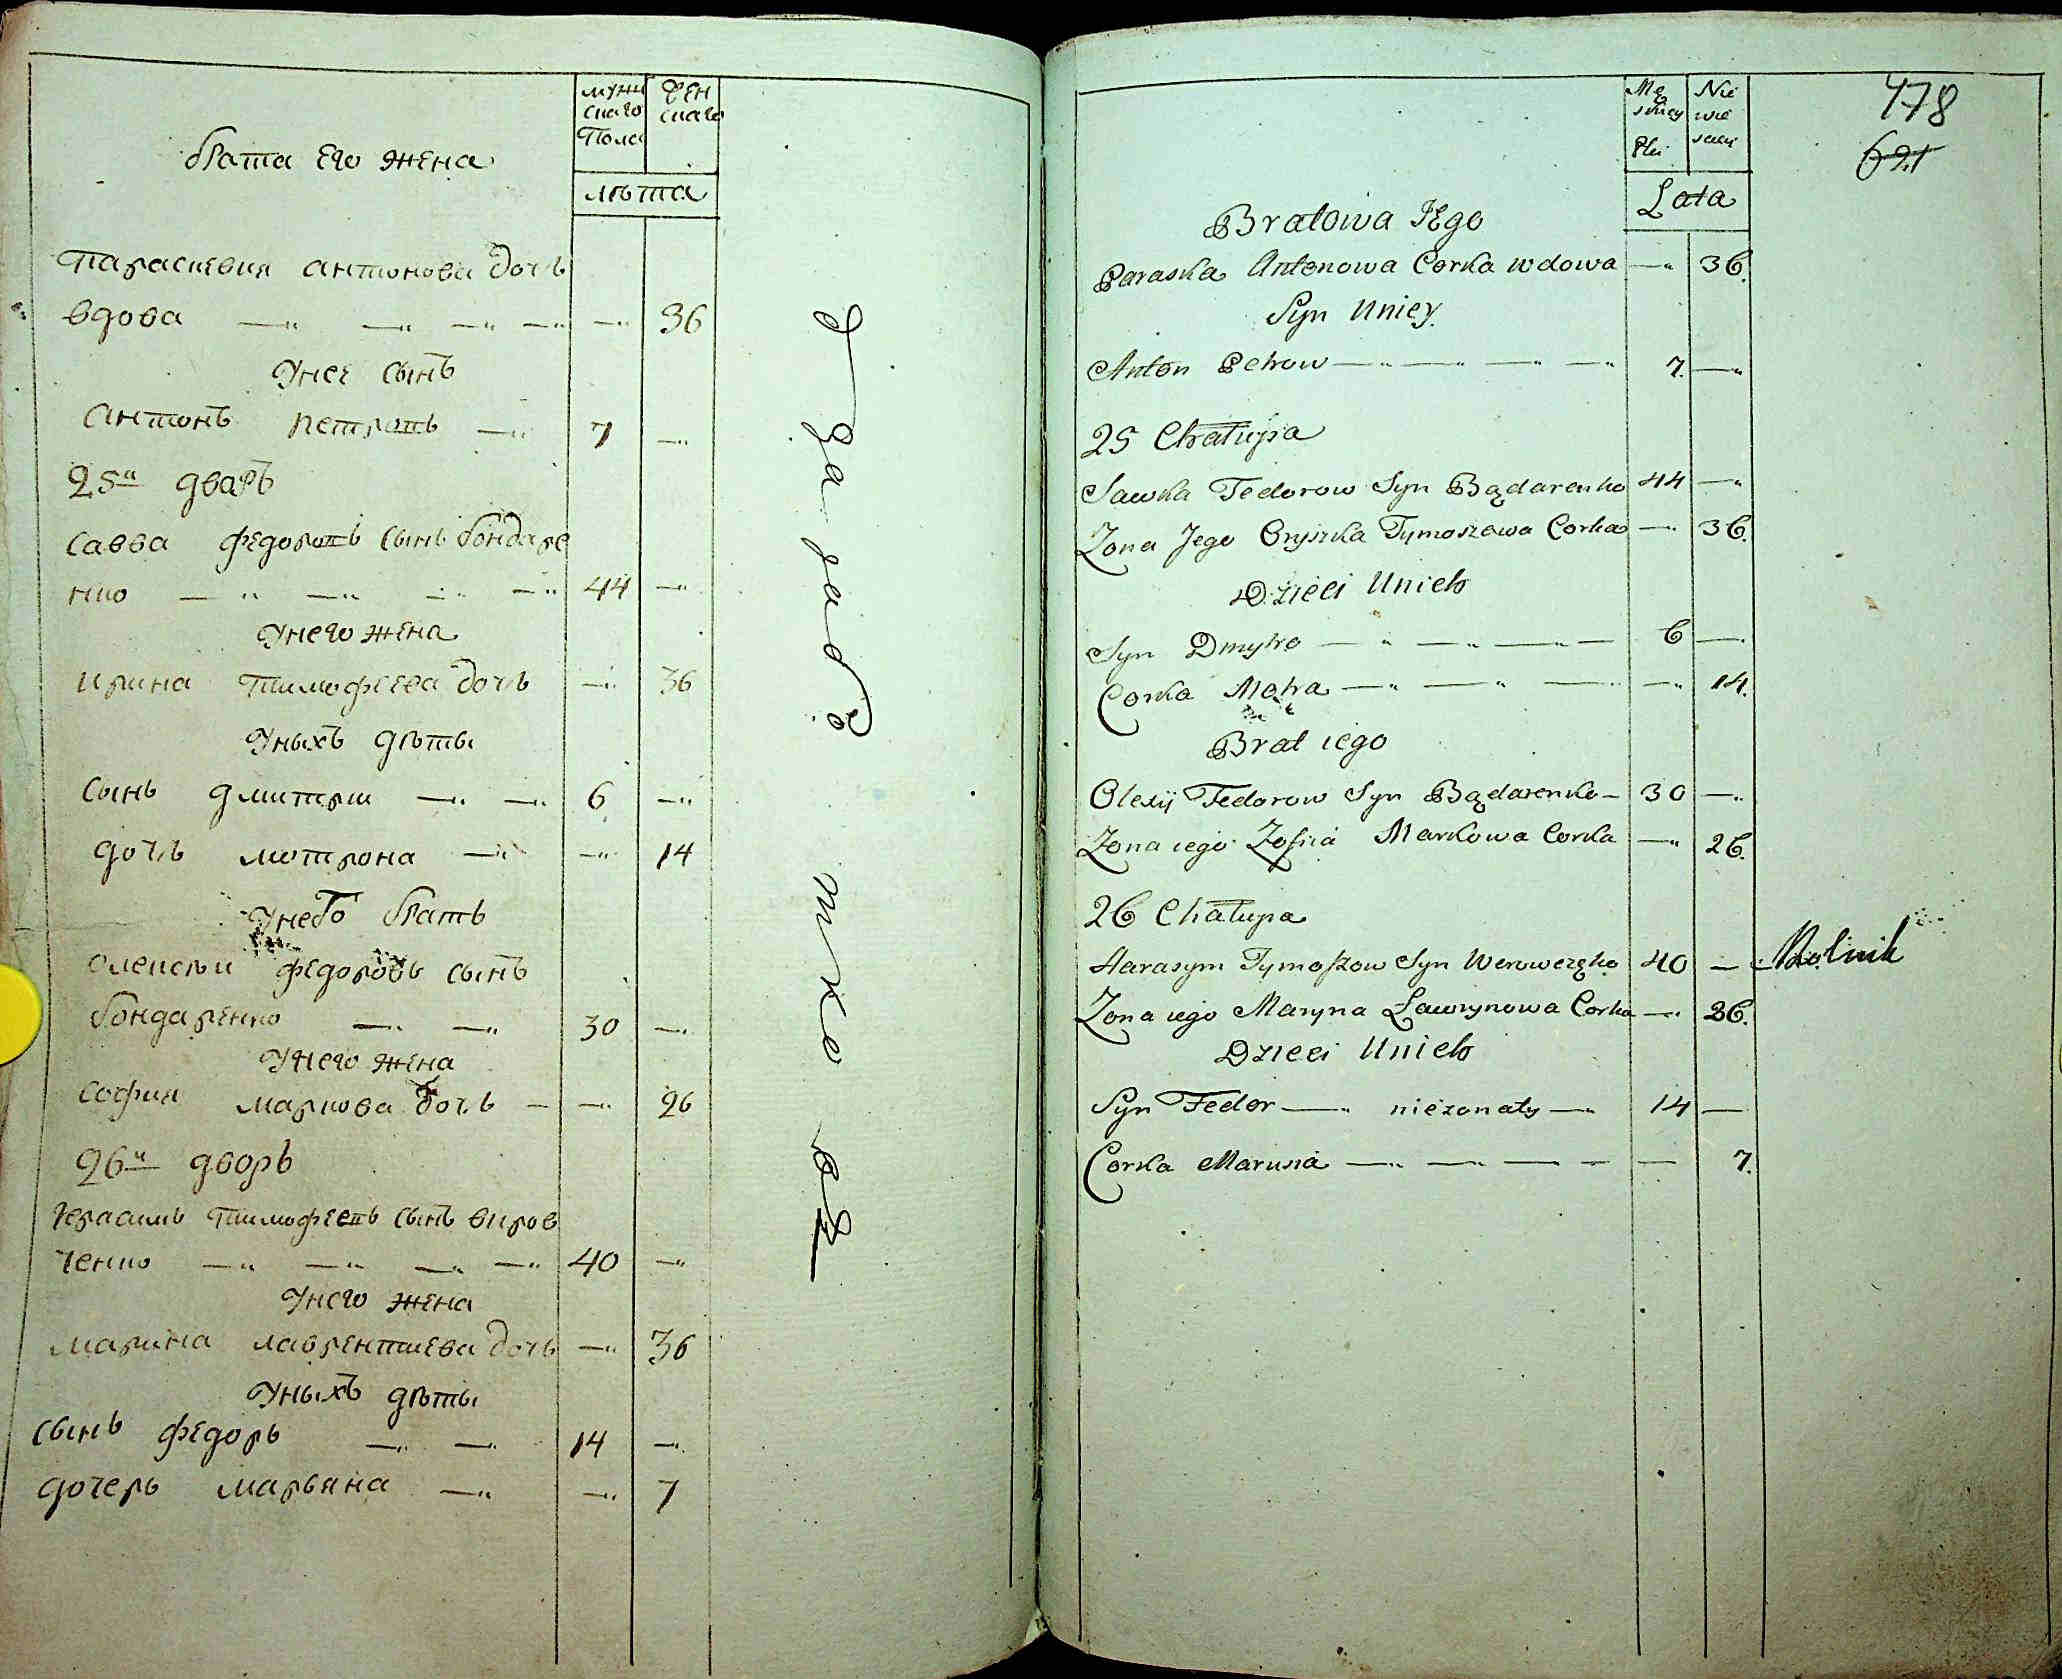 мужескаго Пола женскаго
лѣта
брата Его жена
Параскевия антонова дочь
вдова — — — — — 36
Унеі сынъ
антонъ петровъ — 7 —
25й дворъ
савва федоровъ сынъ бондаре
нко — — — — 44 —
Унего жена
ирина тимофеева дочь — 36
Уныхъ дѣти
сынъ дмитрии — — 6 —
дочь мотрона — — 14
Унего братъ
олексѣи федоровъ сынъ
бондаренко — — 30 —
Унего жена
софия маркова дочь — — 26
26й дворъ
герасимъ тимофеевъ сынъ виров
ченко — — — — 40 —
Унего жена
марина лаврентиева дочь — 36
Уныхъ дѣти
сынъ федоръ — — 14 —
дочеръ марьяна — — 7
Męskiey Płci Niewiesciey
Lata
478
621
Bratowa JEgo
Paraska Antonowa Corka wdowa — 36.
Syn Uniey
Anton Petrow — — — — 7. —
25 Chałupa
Sawka Fedorow Syn Bądarenko 44 —
Zona Jego Oryszka Tymoszowa Corka — 36.
Dzieci Unich
Syn Dmytro — — — — 6 —
Corka Motra — — — — 14.
Brat iego
Olexij Fedorow Syn Bądarenko — 30 —
Zona iego Zofiia Markowa Corka — 26.
26 Chałupa
Harasym Tymoszow Syn Werowczęko 40 — Rolnik
Zona iego Maryna Ławrynowa Corka — 36.
Dzieci Unich
Syn Fedor — niezonaty — 14 —
Corka Marusia — — — — — 7.